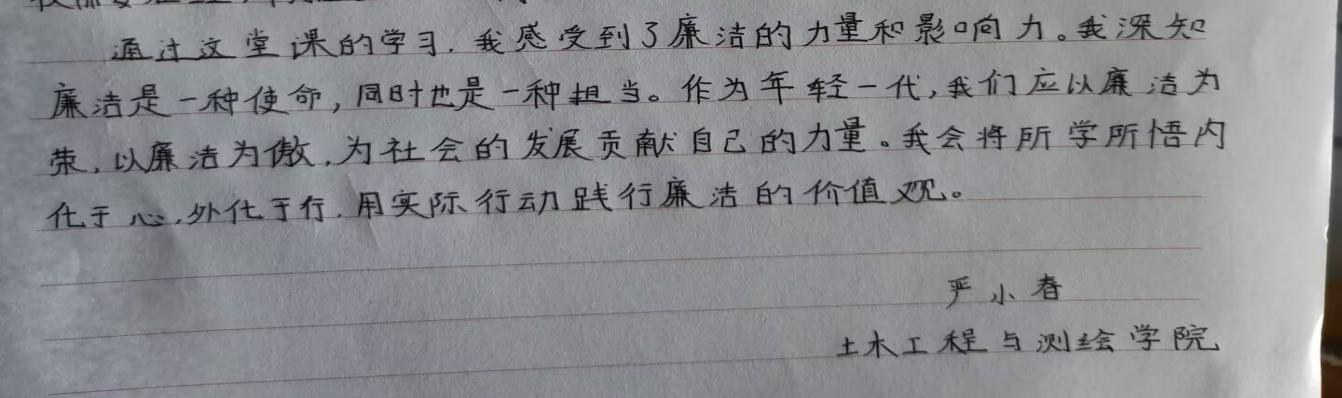 通过这堂课的学习，我感受到了廉洁的力量和影响力。我深知
廉洁是一种使命，同时也是一种担当。作为年轻一代，我们应以廉洁为
荣，以廉洁为傲，为社会的发展贡献自己的力量。我会将所学所悟内
化于心，外化于行，用实际行动践行廉洁的价值观。
严小春
土木工程与测绘学院